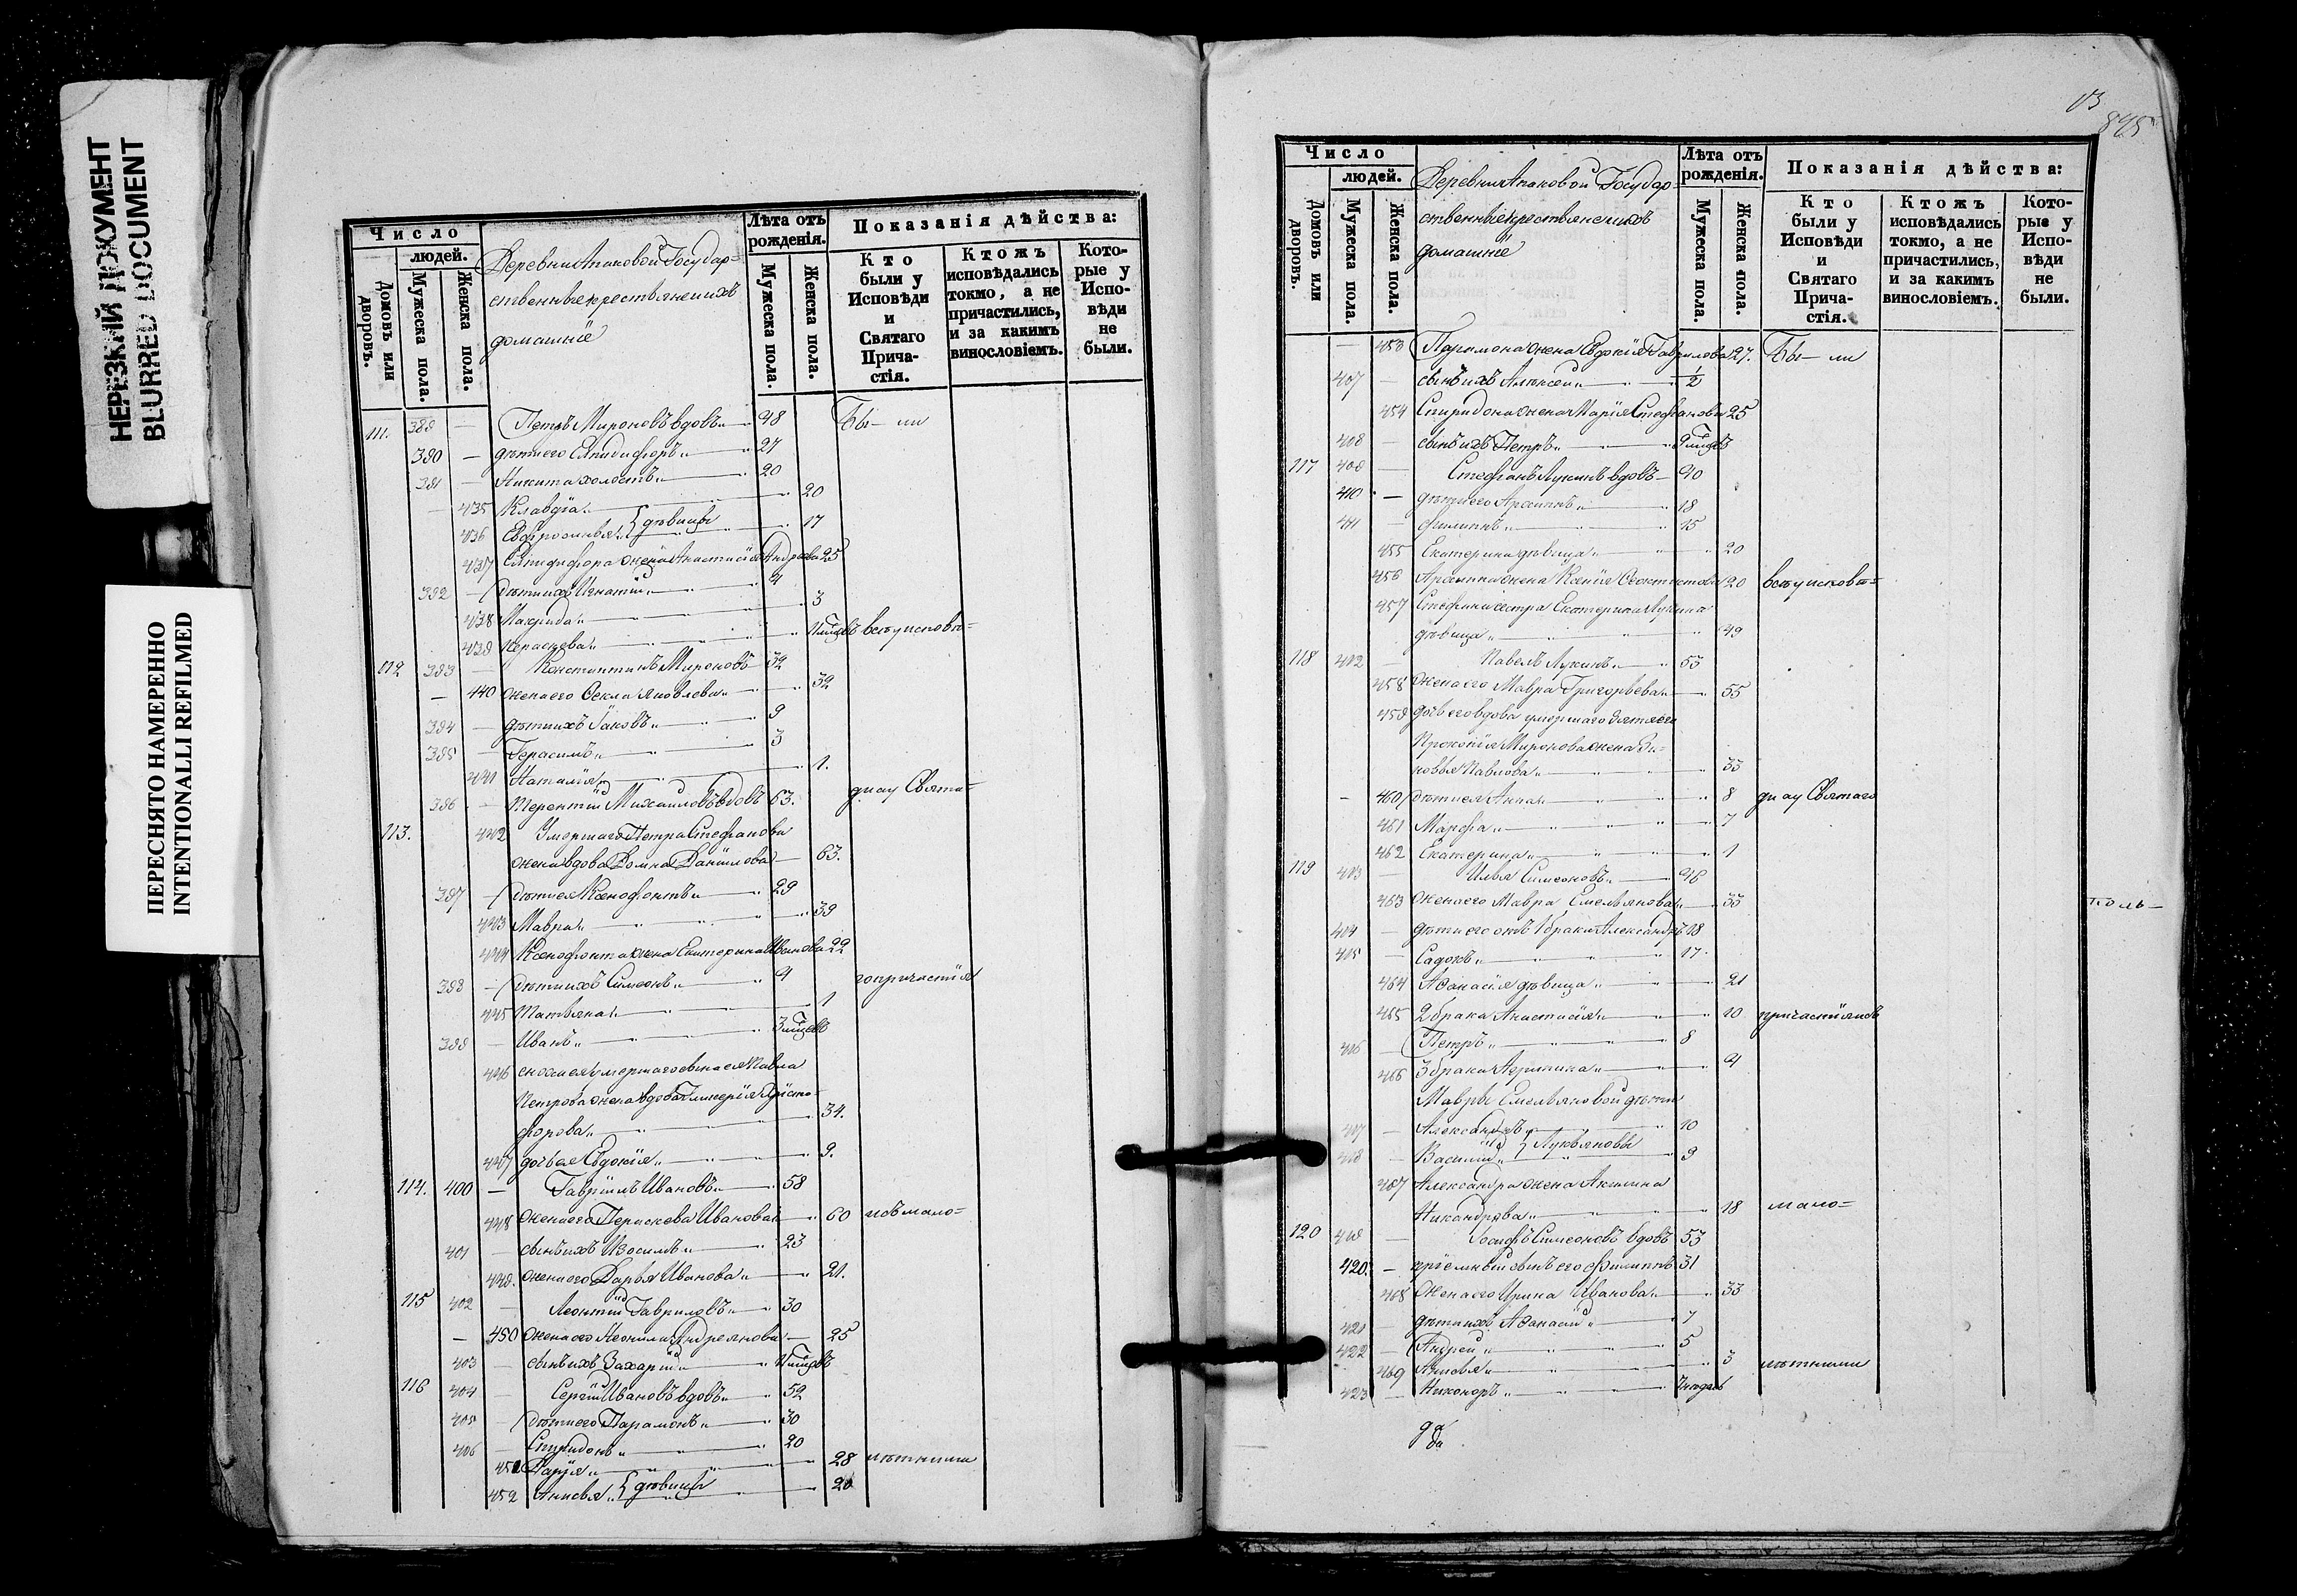 НЕРЕЗКИЙ ДОКУМЕНТ
BLURRED DOCUMENT
ПЕРЕСНЯТО НАМЕРЕННО
INTENTIONALLI REFILMED
Число
людей.
Домовъ или дворовъ.
Мужеска пола.
Женска пола.
Деревни Апаковой Государ=
ственные крестьяне и ихъ
домашніе
Лѣта отъ рожденія.
Мужеска пола.
Женска пола.
Показанія дѣйства:
Кто были у Исповѣди и Святаго Прича- стія.
Ктожъ исповѣдались токмо, а не причастились, и за какимъ винословіемъ.
Кото- рые у Испо- вѣди не были.
111. 389 — Петръ Мироновъ вдовъ 48 Бы- ли
390 — дѣти его Епидифоръ 27
391 — Никита холостъ 20
— 435 Клавдія 20
436 Евфросинья } дѣвицы 17
437 Епидифора жена Анастасія Андреева 25
392 — дѣти ихъ Игнатій 4
438 Макрида 3
439 Параскева всѣ у исповѣ=
112 393 — Константинъ Мироновъ 32
— 440 жена его Фекла Яковлева 32
394 — дѣти ихъ Іаковъ 9
395 — Герасимъ 3
441 Наталія 1.
396 — Терентій Михаиловъ вдовъ 63. ди и у Свята=
113. 442 Умершаго Петра Стефанова
жена вдова Домна Даніилова 63.
397 — дѣти ея Ксенофонтъ 29
443 Мавра 39
444 Ксенофонта жена Екатерина Иванова 22
398 — дѣти ихъ Симеонъ 4 го причастія
445 Татьяна 1
399 — Иванъ
446 сноха ея умершаго сына ея Павла
Петрова жена вдова Гликерія Христо=
форова 34.
447 дочь ея Евдокія 9.
114. 400 — Гавріилъ Ивановъ 58
448 жена его Параскева Иванова 60 изъ мало=
401 — сынъ ихъ Изосимъ 23
449. жена его Дарья Иванова 21.
115 402 — Леонтій Гавриловъ 30
— 450 жена его Неонила Андреянова 25
403 — сынъ ихъ Захарій
116 404 — Сергій Ивановъ вдовъ 52
405 — дѣти его Парамонъ 30
406 — Спиридонъ 20
451 Дарія 28 лѣтними
452 Анисья } дѣвицы 20
13
845
Число
людей.
Домовъ или дворовъ.
Мужеска пола.
Женска пола.
Деревни Апаковой Государ=
ственные крестьяне и ихъ
домашніе
Лѣта отъ рожденія.
Мужеска пола.
Женска пола.
Показанія дѣйства:
Кто были у Исповѣди и Святаго Прича- стія.
Ктожъ исповѣдались токмо, а не причастились, и за какимъ винословіемъ.
Кото- рые у Испо- вѣди не были.
— 453 Парамона жена Евдокія Гаврилова 27. Бы- ли
407 — сынъ ихъ Алексей 1/2
454 Спиридона жена Марія Стефанова 25
408 — сынъ ихъ Петръ
117 409 — Стефанъ Лукинъ вдовъ 40
410 — дѣти его Архипъ 18
411 — Филиппъ 15
455 Екатерина дѣвица 20
456 Архипа жена Ксенія Феоктистова 20 всѣ у исповѣ=
457 Стефана сестра Екатерина Лукина
дѣвица 49
118 412 — Павелъ Лукинъ 53
458 жена его Мавра Григорьева 55
459 дочь его вдова умершаго зятя его
Прокопія Миронова жена Зи=
новья Павлова 33
— 460 дѣти ея Анна 8 ди и у Святаго
461 Марфа 7
462 Екатерина 1
119 413 — Илья Симеоновъ 46
463 жена его Мавра Емельянова 33
толь—
414 — дѣти его отъ 1 брака Александръ 18
415 — Садокъ 17
464 Афанасія дѣвица 21
465 2 брака Анастасія 10 причастія изъ
416 — Петръ 8
466 3 брака Agrипина 4
Мавры Емельяновой дѣти
417 — Александръ 10
418 — Василій } Лукьяновы 9
467 Александра жена Акилина
Никандрова 18 мало=
120 419 — Іосифъ Симеоновъ вдовъ 53
420. — пріемный сынъ его Филиппъ 31
468 жена его Ирина Иванова 33
421 — дѣти ихъ Афанасій 7
422 — Андрей 5
469 Анисья 3 лѣтними
423 — Никоноръ